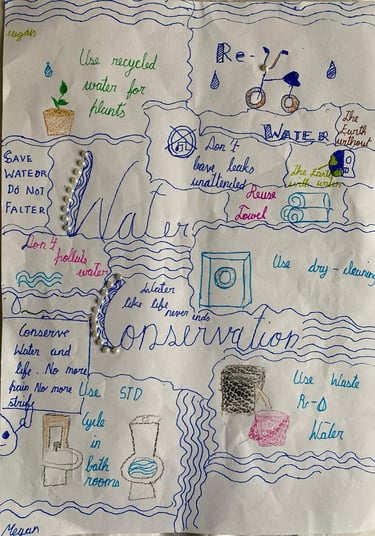 Megan
Use recycled
water for
plants
Re-
WATER
The
Earth
without
Don't
leave leaks
unattended
The Earth
with water
SAVE
WATER
DO NOT
FALTER
Water
Reuse
Towel
Don't
pollute
water
Use dry-cleaning
Water
like life
never ends
Conservation
Conserve
Water and
life. No more
pain No more
strife
Use STD
Cycle
in
bath
rooms
Use Waste
R-O
Water
Megan